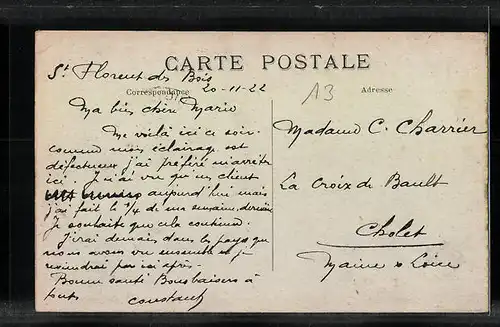 CARTE POSTALE
St Florent ds Bois
20-11-22
Correspondance
A3
Adresse
Ma bien chère Marie
Me voilà ici ce soir
comme mon éclairage est
défectueux j'ai préféré m'arrêter
ici. Je n'ai vu qu'un client
aujourd'hui mais
j'ai fait le 3/4 de ma semaine dernière
Je souhaite que cela continue.
J'irai demain dans les pays que
nous avons vu ensemble et je
reviendrai par ici après.
Bonne santé Bons baisers à
tous
Constant
Madame C. Charrier
La Croix de Bault
Cholet
Maine & Loire